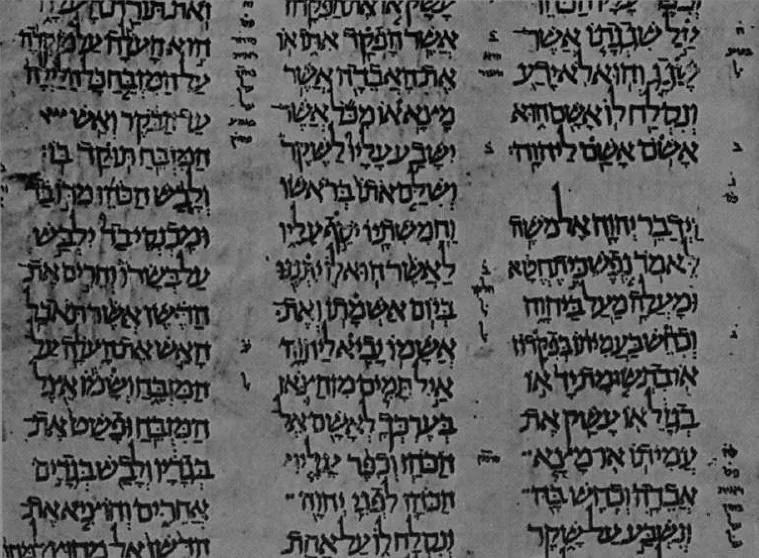 עַל שִׁגְגָתוֹ אֲשֶׁר
שָׁגָג וְהוּא לֹא יָדַע
וְנִסְלַח לוֹ אָשָׁם הוּא
אָשֹׁם אָשַׁם לַיהוָה׃
וַיְדַבֵּר יְהוָה אֶל מֹשֶׁה
לֵּאמֹר נֶפֶשׁ כִּי תֶחֱטָא
וּמָעֲלָה מַעַל בַּיהוָה
וְכִחֵשׁ בַּעֲמִיתוֹ בְּפִקָּדוֹן
אוֹ בִתְשׂוּמֶת יָד אוֹ
בְגָזֵל אוֹ עָשַׁק אֶת
עֲמִיתוֹ אוֹ מָצָא
אֲבֵדָה וְכִחֶשׁ בָּהּ
וְנִשְׁבַּע עַל שָׁקֶר
אֲשֶׁר הָפְקַד אִתּוֹ אוֹ
אֶת הָאֲבֵדָה אֲשֶׁר
מָצָא אוֹ מִכֹּל אֲשֶׁר
יִשָּׁבַע עָלָיו לַשֶּׁקֶר
וְשִׁלַּם אֹתוֹ בְּרֹאשׁוֹ
וַחֲמִשִׁתָיו יֹסֵף עָלָיו
לַאֲשֶׁר הוּא לוֹ יִתְּנֶנּוּ
בְּיוֹם אַשְׁמָתוֹ וְאֶת
אֲשָׁמוֹ יָבִיא לַיהוָה
אַיִל תָּמִים מִן הַצֹּאן
בְּעֶרְכְּךָ לְאָשָׁם אֶל
הַכֹּהֵן וְכִפֶּר עָלָיו
הַכֹּהֵן לִפְנֵי יְהוָה
וְנִסְלַח לוֹ עַל אַחַת
הִוא הָעֹלָה עַל מוֹקְדָה
עַל הַמִּזְבֵּחַ כָּל הַלַּיְלָה
עַד הַבֹּקֶר וְאֵשׁ
הַמִּזְבֵּחַ תּוּקַד בּוֹ׃
וְלָבַשׁ הַכֹּהֵן מִדּוֹ בַד
וּמִכְנְסֵי בַד יִלְבַּשׁ
עַל בְּשָׂרוֹ וְהֵרִים אֶת
הַדֶּשֶׁן אֲשֶׁר תֹּאכַל
הָאֵשׁ אֶת הָעֹלָה עַל
הַמִּזְבֵּחַ וְשָׂמוֹ אֵצֶל
הַמִּזְבֵּחַ׃ וּפָשַׁט אֶת
בְּגָדָיו וְלָבַשׁ בְּגָדִים
אֲחֵרִים וְהוֹצִיא אֶת
הַדֶּשֶׁן אֶל מִחוּץ